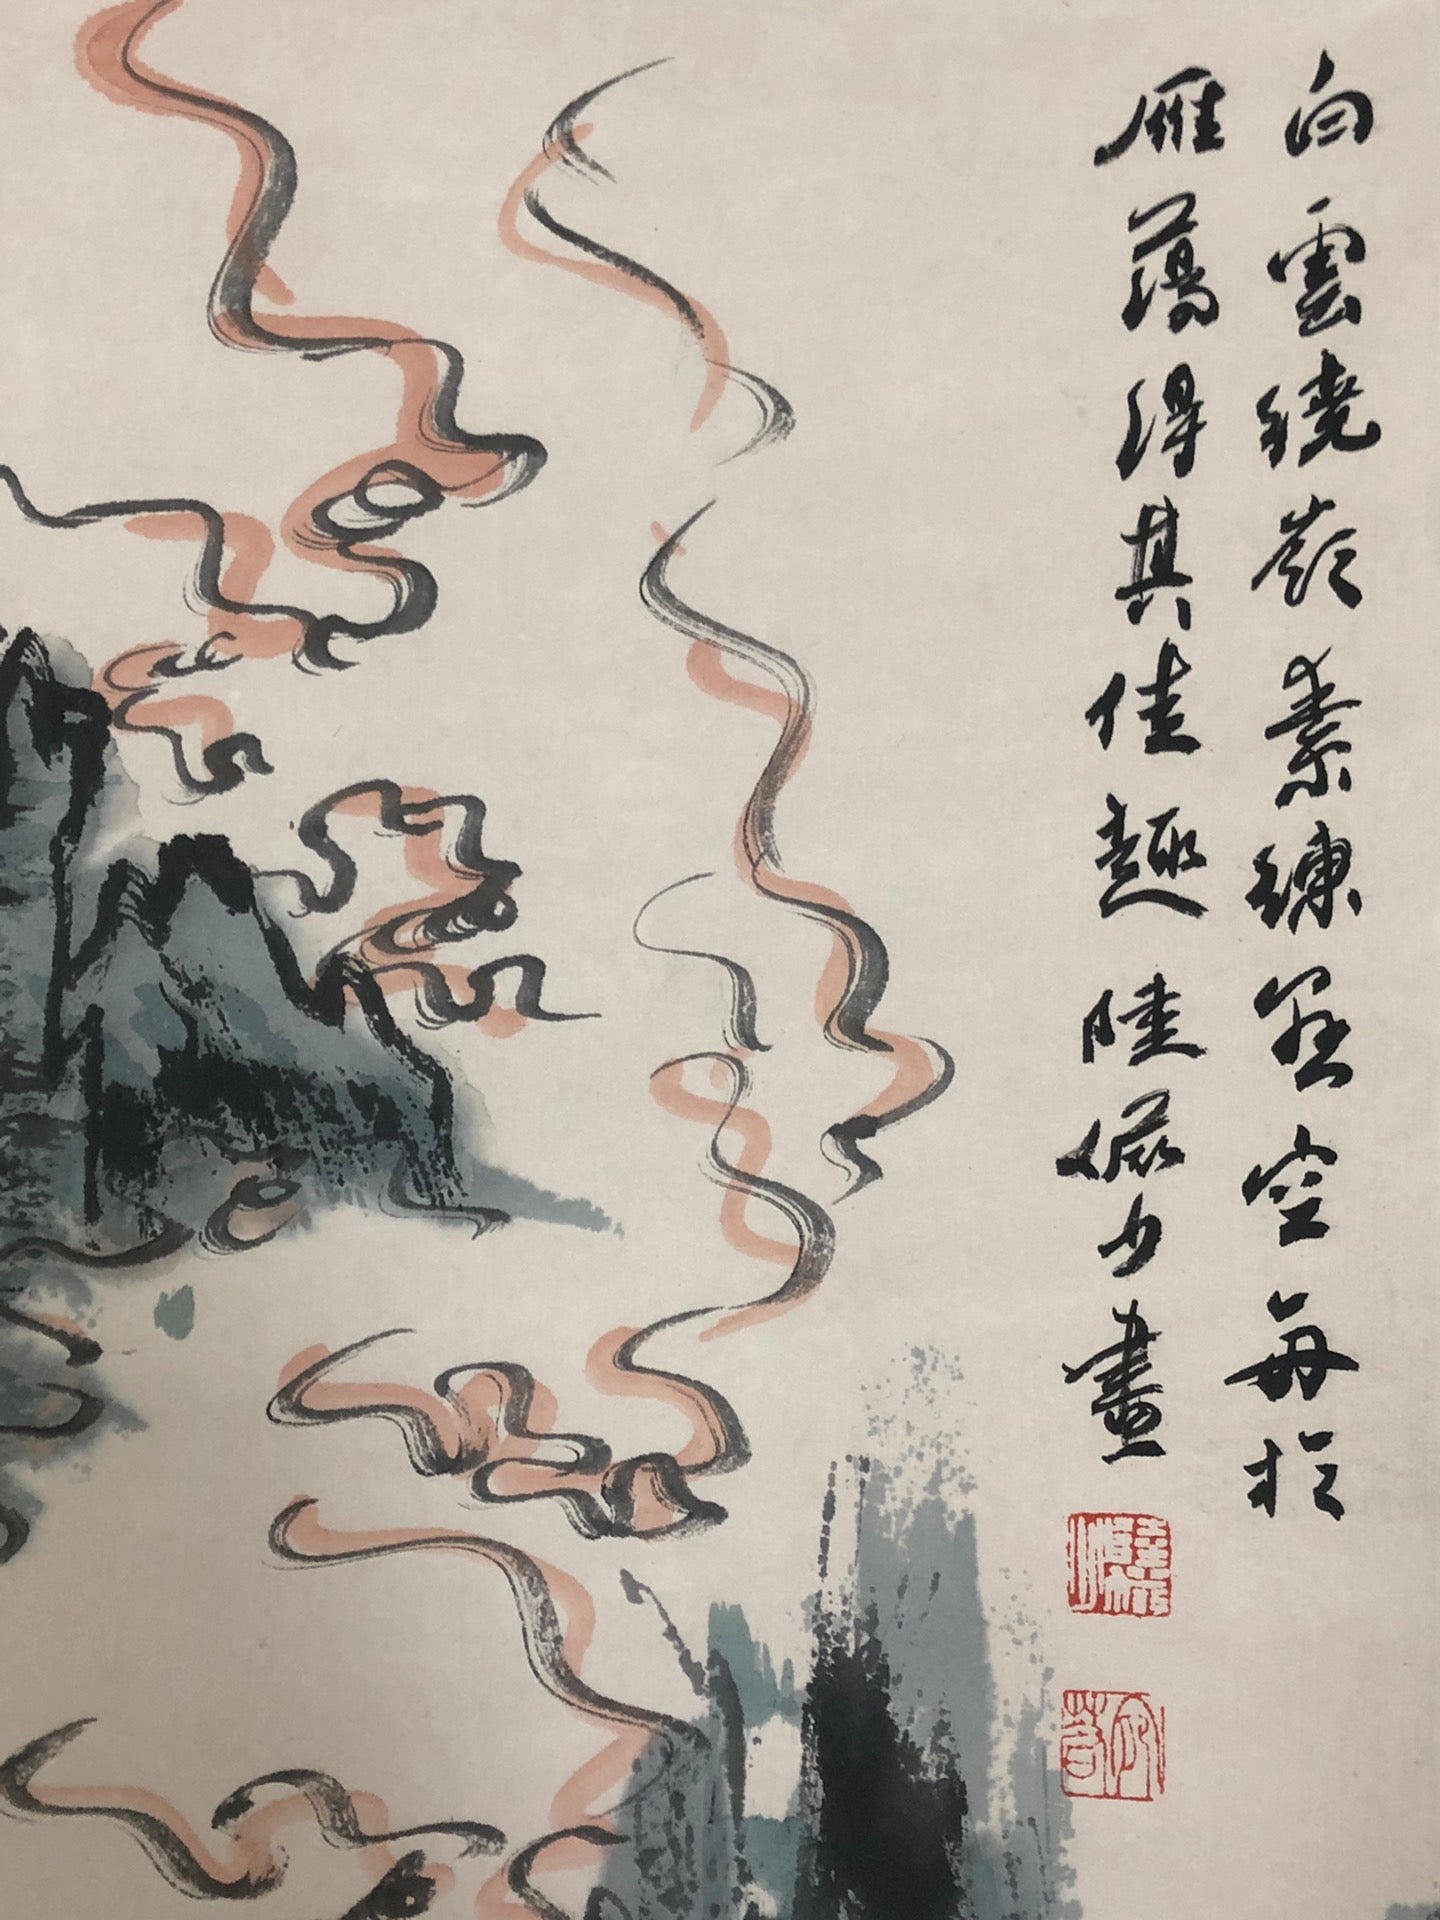 白雲繞嶺素練懸空每於
雁蕩得其佳趣陸儼少畫